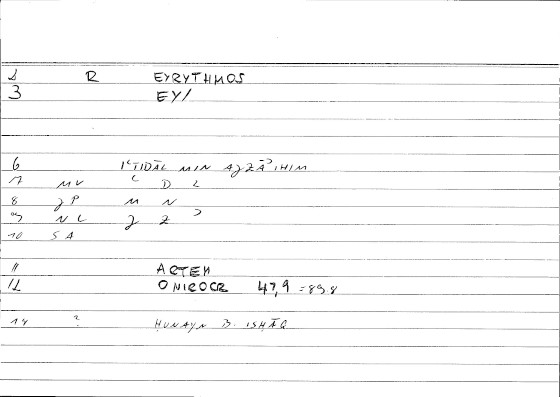 1 R EYRYTHMOS
3 EY/
6 IʿTIDĀL MIN AJZĀʾIHIM
7 MV ʿ D L
8 JP M N
9 NC J Z ʾ
10 SA
11 ARTEM
12 ONIROCR 47,9 = 89.8
14 ? ḤUNAYN B. ISḤĀQ